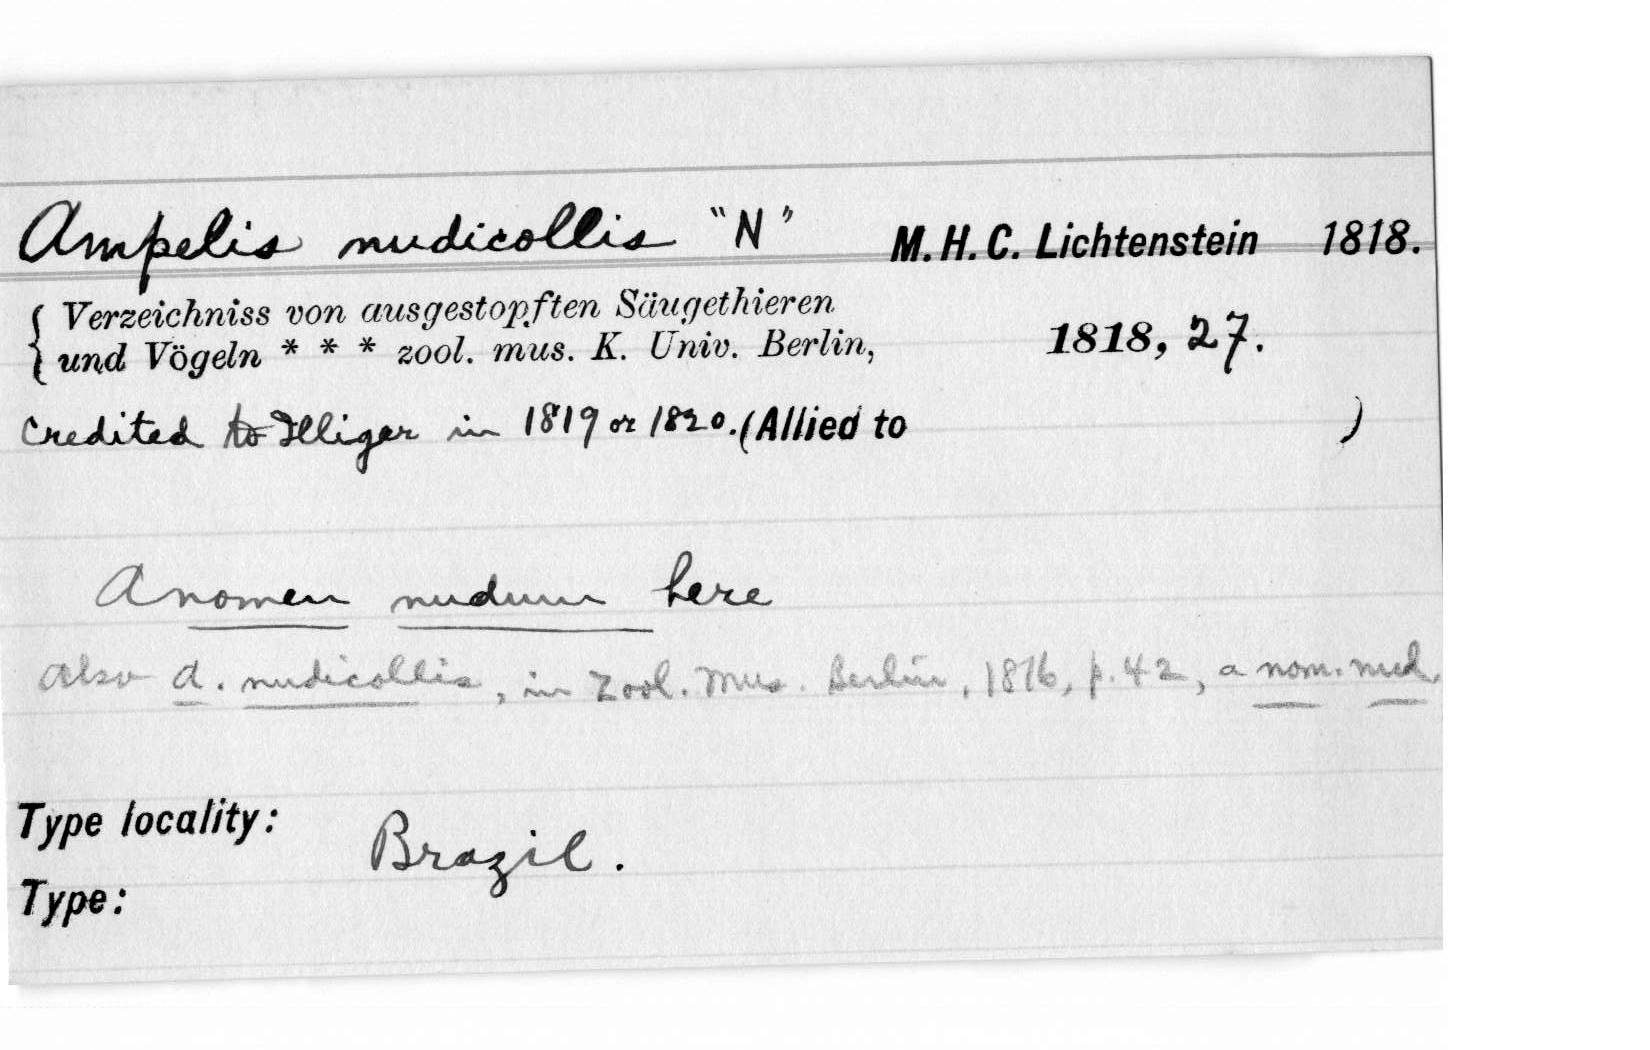 Ampelis nudicollis "N" M. H. C. Lichtenstein 1818.
{ Verzeichniss von ausgestopften Säugethieren
und Vögeln * * * zool. mus. K. Univ. Berlin, 1818, 27.
Credited to Illiger in 1819 or 1820. (Allied to )
A nomen nudum here
Also A. nudicollis, in Zool. Mus. Berlin, 1816, p. 42, a nom. nud.
Type locality: Brazil.
Type: